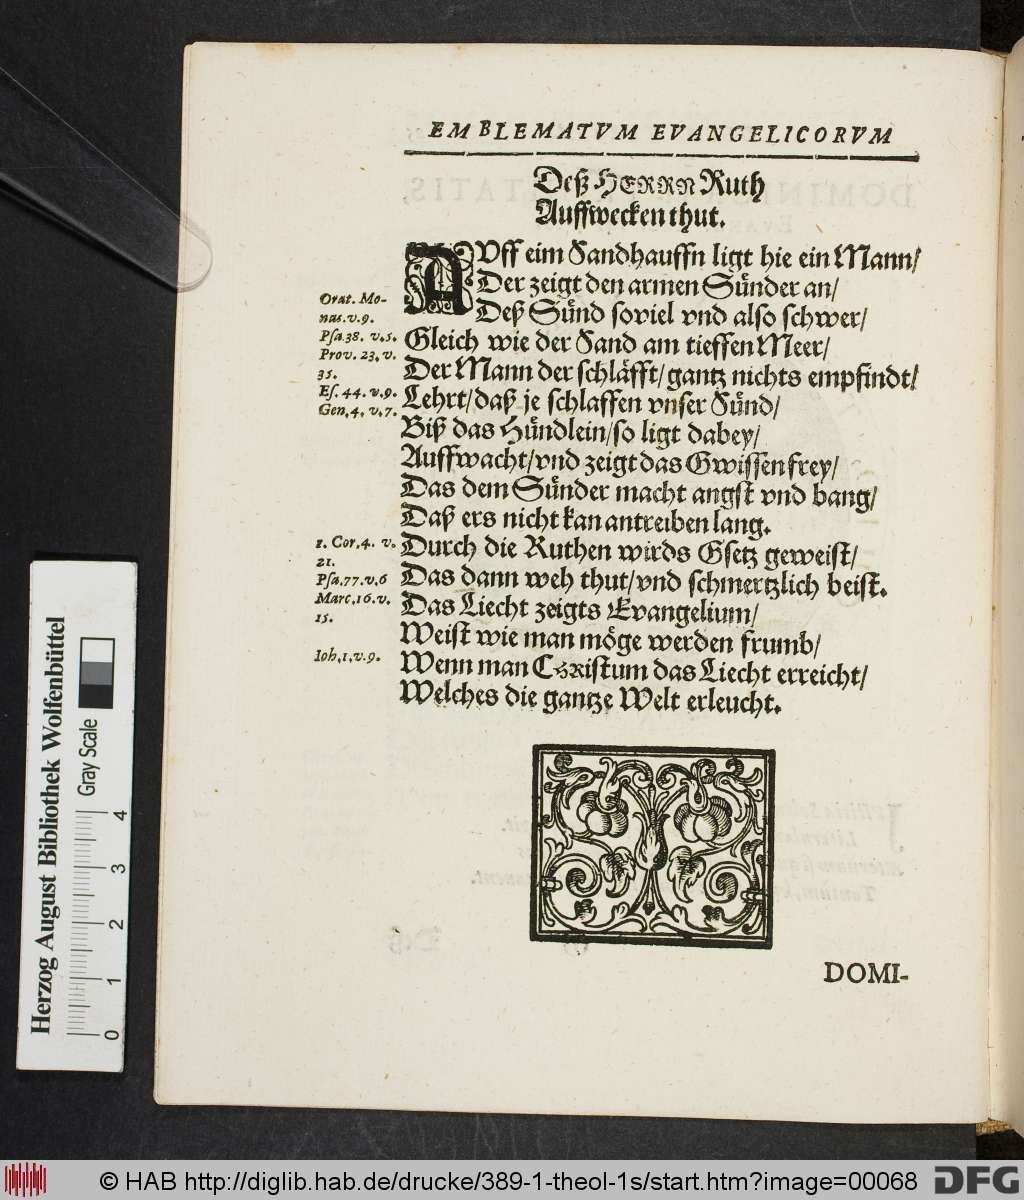 EMBLEMATVM EVANGELICORVM
Deß HERRN Ruth
Auffwecken thut.
AVff eim Sandhauffn ligt hie ein Mann/
Der zeigt den armen Sünder an/
Orat. Mo-
nas.v.9.
Deß Sünd soviel vnd also schwer/
Psa.38. v.5.
Gleich wie der Sand am tieffen Meer/
Prov. 23. v.
35.
Der Mann der schläfft/gantz nichts empfindt/
Es. 44. v.9.
Gen.4. v.7.
Lehrt/daß je schlaffen vnser Sünd/
Biß das Hündlein/so ligt dabey/
Auffwacht/vnd zeigt das Gwissen frey/
Das dem Sünder macht angst vnd bang/
Daß ers nicht kan antreiben lang.
1. Cor.4. v.
21.
Durch die Ruthen wirds Gsetz geweist/
Psa.77.v.6
Das dann weh thut/vnd schmertzlich beist.
Marc.16.v.
15.
Das Liecht zeigts Evangelium/
Weist wie man möge werden frumb/
Ioh.1.v.9.
Wenn man CHRistum das Liecht erreicht/
Welches die gantze Welt erleucht.
DOMI-
Herzog August Bibliothek Wolfenbüttel
Gray Scale
0 1 2 3 4
© HAB http://diglib.hab.de/drucke/389-1-theol-1s/start.htm?image=00068
DFG